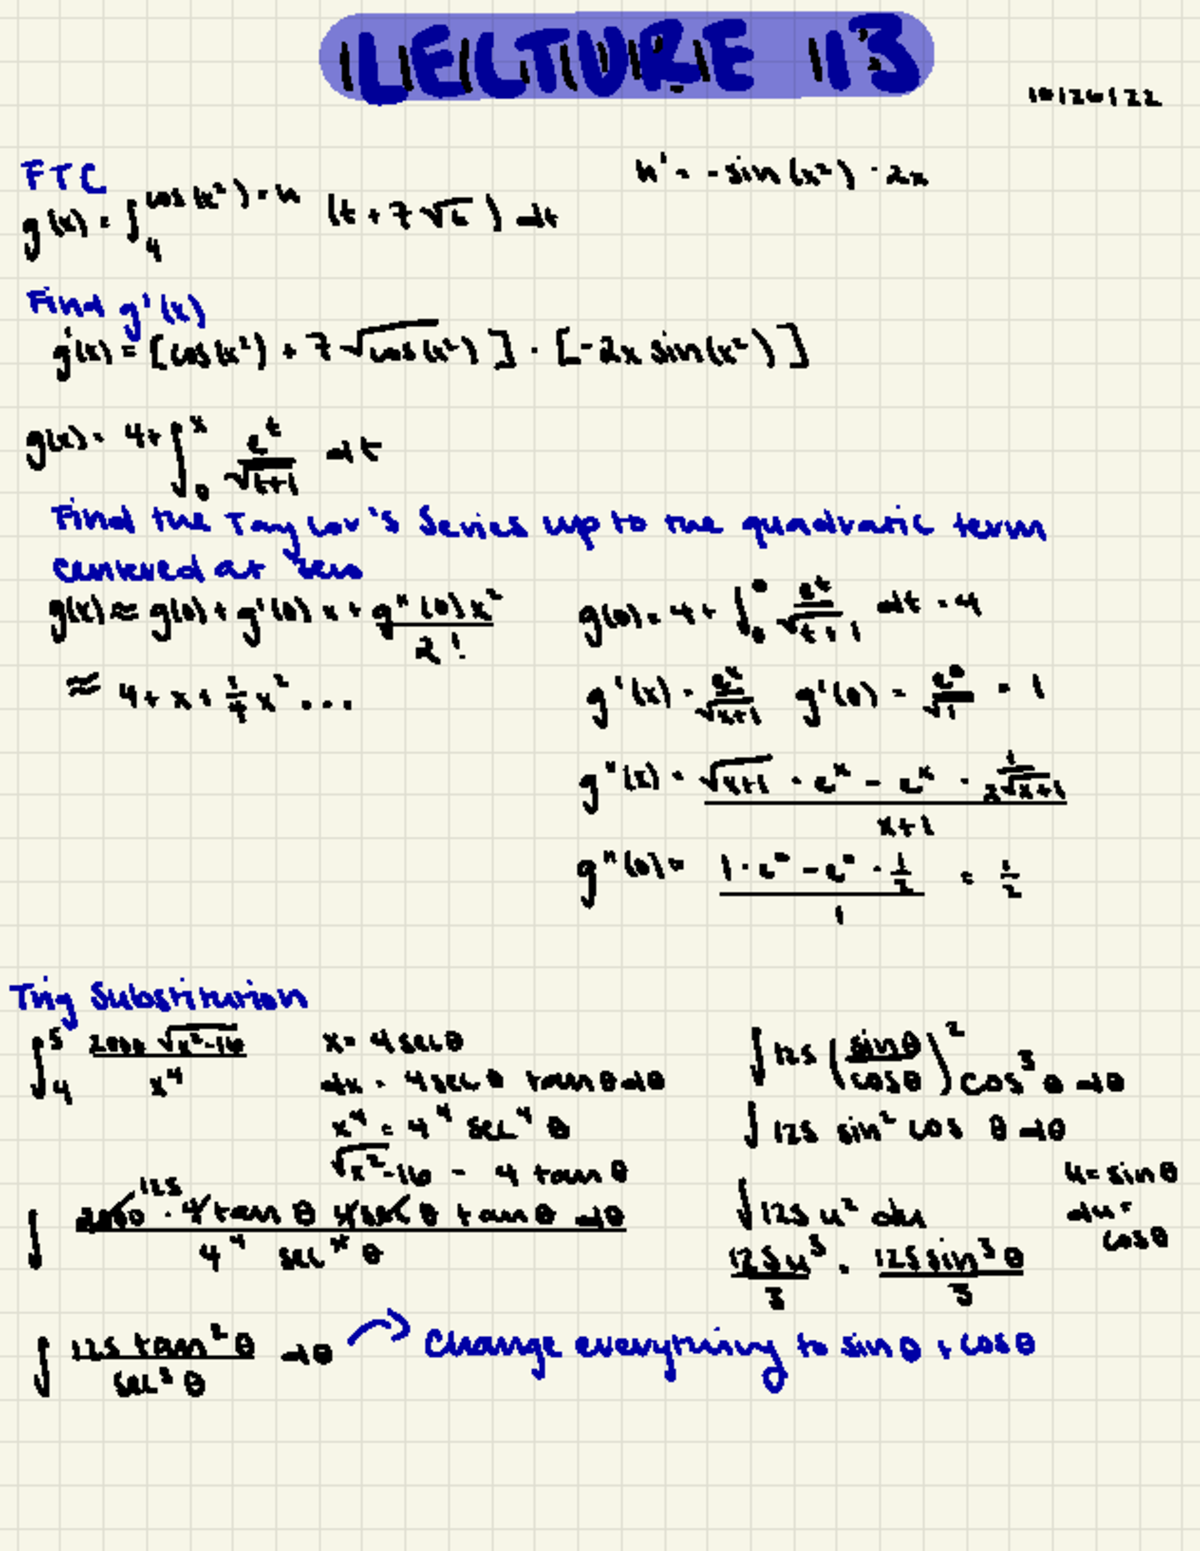 LECTURE 13
10/26/22
FTC
h' = -sin(x²) · 2x
g(x) = ∫₄^{cos(x²) = h} (t + 7√t) dt
Find g'(x)
g'(x) = [cos(x²) + 7√cos(x²)] · [-2x sin(x²)]
g(x) = 4 + ∫₀ˣ e^t/√(t+1) dt
Find the Taylor's Series up to the quadratic term
centered at zero
g(x) ≈ g(0) + g'(0) x + g''(0)x²/2!
≈ 4 + x + 1/4 x² ...
g(0) = 4 + ∫₀⁰ e^t/√(t+1) dt = 4
g'(x) = e^x/√(x+1) g'(0) = e⁰/√1 = 1
g''(x) = (√(x+1) · e^x - e^x · 1/(2√(x+1)))/(x+1)
g''(0) = (1·e⁰ - e⁰ · 1/2)/1 = 1/2
Trig Substitution
∫₄⁵ 2000 √(x²-16)/x⁴
x = 4 sec θ
dx = 4 sec θ tan θ dθ
x⁴ = 4⁴ sec⁴ θ
√(x²-16) = 4 tan θ
125
∫ 2000 · 4 tan θ 4 sec θ tan θ dθ/(4⁴ sec⁴ θ)
∫ 125 tan² θ/sec³ θ dθ
Change everything to sin θ + cos θ
∫ 125 (sin θ/cos θ)² cos³ θ dθ
∫ 125 sin² cos θ dθ
u = sin θ
du = cos θ
∫ 125 u² du
125u³/3 = 125 sin³ θ/3